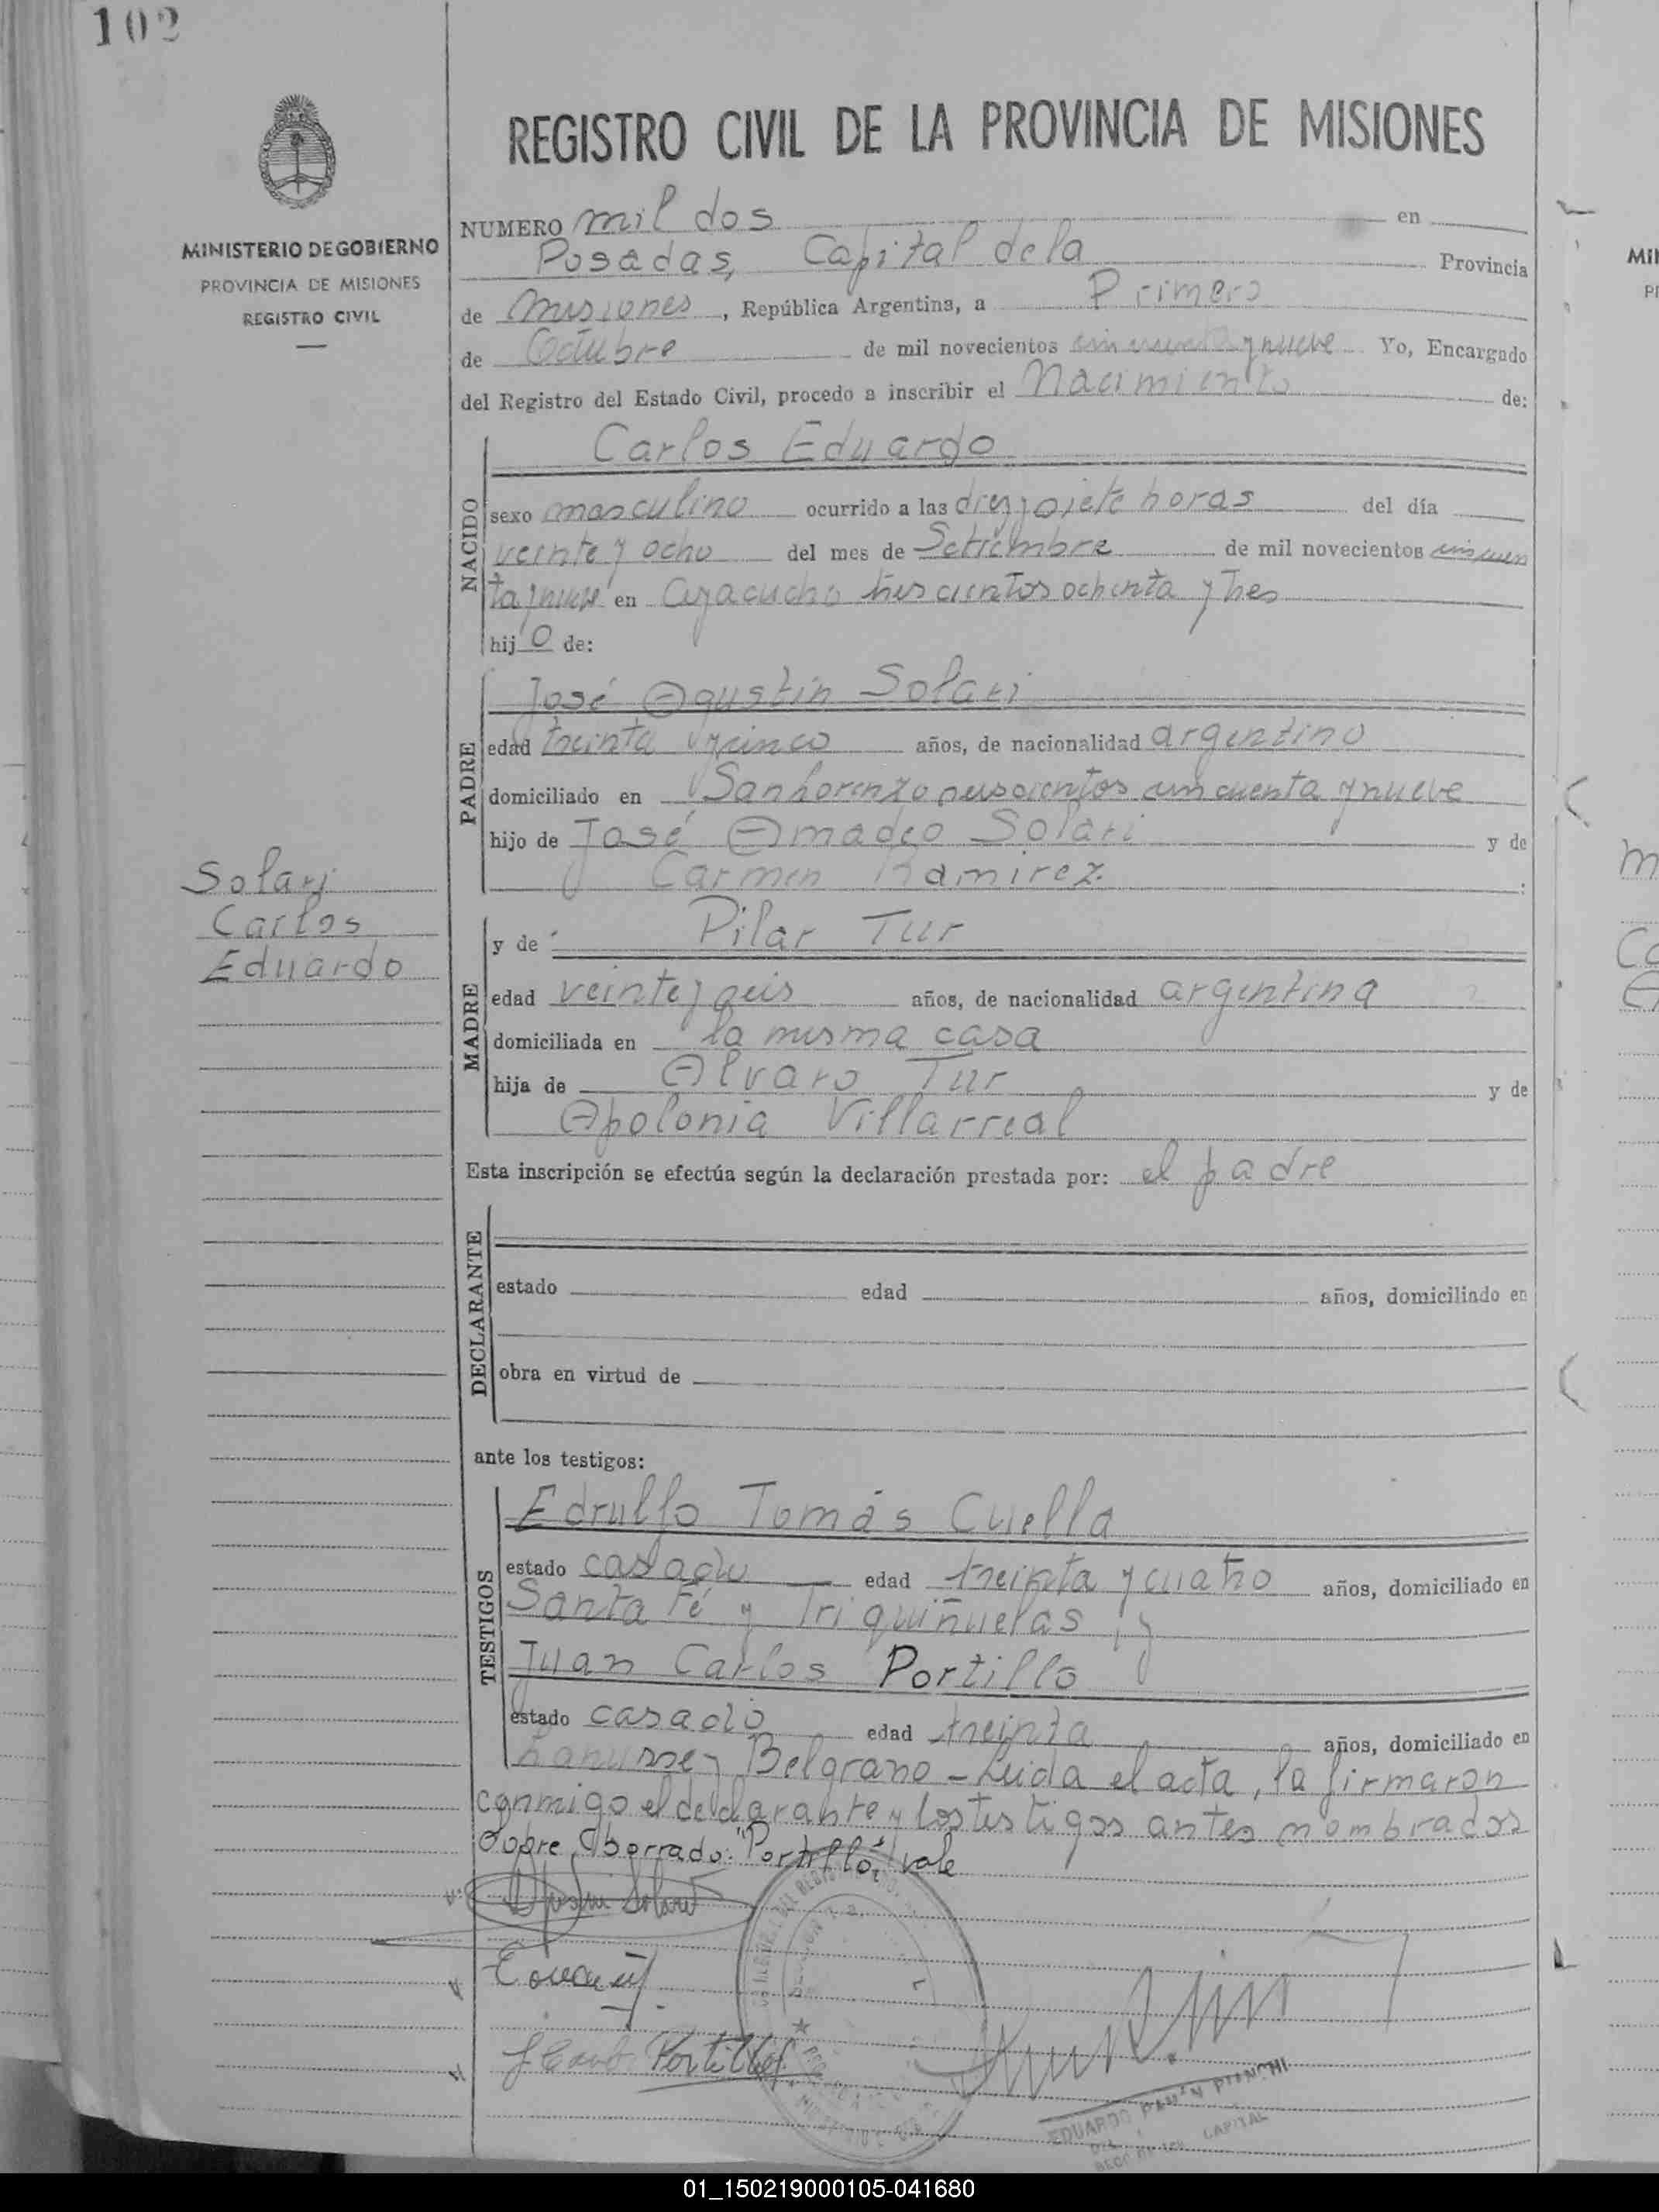 102
REGISTRO CIVIL DE LA PROVINCIA DE MISIONES
MINISTERIO DE GOBIERNO
PROVINCIA DE MISIONES
REGISTRO CIVIL
NUMERO mil dos en
Posadas, Capital de la Provincia
de Misiones, República Argentina, a Primero
de Octubre de mil novecientos cincuenta y nueve Yo, Encargado
del Registro del Estado Civil, procedo a inscribir el Nacimiento de:
NACIDO
Carlos Eduardo
sexo masculino ocurrido a las diez y siete horas del día
veinte y ocho del mes de Setiembre de mil novecientos cincuen
ta y nueve en Ayacucho trescientos ochenta y tres
hijo de:
PADRE
José Agustin Solari
edad treinta y cinco años, de nacionalidad argentino
domiciliado en San Lorenzo seiscientos cincuenta y nueve
hijo de José Amadeo Solari y de
Carmen Ramirez :
Solari
Carlos
Eduardo
MADRE
y de Pilar Tur
edad veinte y seis años, de nacionalidad argentina
domiciliada en la misma casa
hija de Alvaro Tur y de
Apolonia Villarreal
Esta inscripción se efectúa según la declaración prestada por: el padre
DECLARANTE
estado edad años, domiciliado en
obra en virtud de
ante los testigos:
TESTIGOS
Edrulfo Tomás Cuella
estado casado edad treinta y cuatro años, domiciliado en
Santa Fé y Triquiñuelas, y
Juan Carlos Portillo
estado casado edad treinta años, domiciliado en
Lanusse y Belgrano - Leida el acta, la firmaron
conmigo el declarante y los testigos antes nombrados
Sobre borrado: "Portillo" vale
Portillo
EDUARDO
CAPITAL
MI
01_150219000105-041680